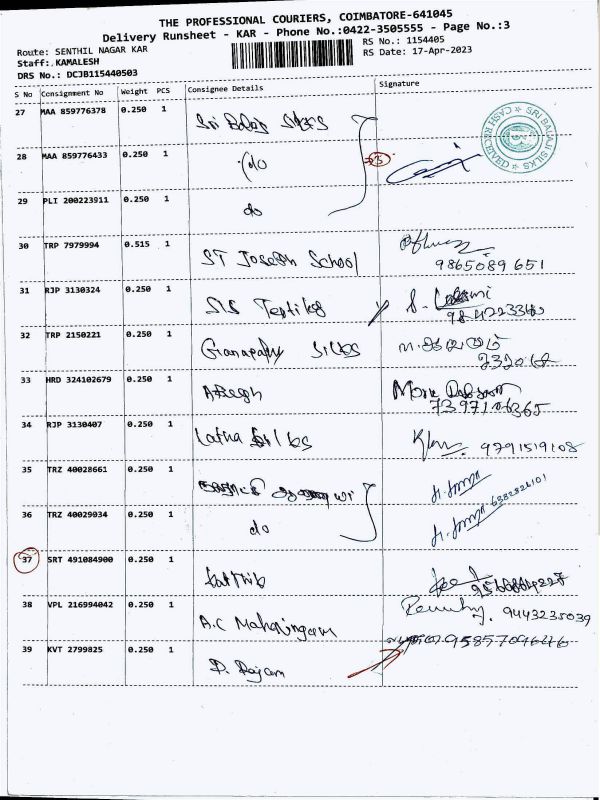 THE PROFESSIONAL COURIERS, COIMBATORE-641045
Delivery Runsheet - KAR - Phone No.:0422-3505555 - Page No.:3
Route: SENTHIL NAGAR KAR
RS No.: 1154405
Staff: KAMALESH
RS Date: 17-Apr-2023
DRS No.: DCJB115440503
S No Consignment No Weight PCS Consignee Details Signature
27 MAA 859776378 0.250 1 Sri Balaji Silks
SRI BALAJI SILKS * CASH RECEIVED *
28 MAA 859776433 0.250 1 do
29 PLI 200223911 0.250 1 do
30 TRP 7979994 0.515 1 ST Joseph School
9865089651
31 RJP 3130324 0.250 1 SLS Textiles S. Lakshmi
32 TRP 2150221 0.250 1 Ganapathy Silks
33 HRD 324102679 0.250 1
34 RJP 3130407 0.250 1 Latha Silks 9791519108
35 TRZ 40028661 0.250 1
36 TRZ 40029034 0.250 1 do 6382826101
37 SRT 491084900 0.250 1
38 VPL 216994042 0.250 1 A.C Mahalingam 9443235039
39 KVT 2799825 0.250 1 P. Rajam